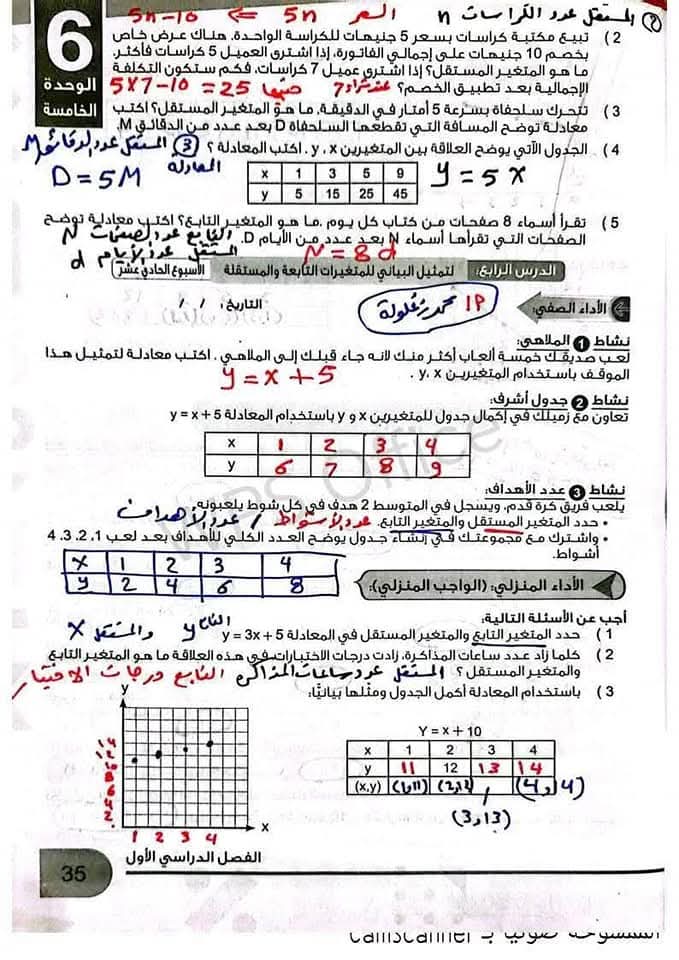 المستقل عدد الكراسات n السعر 5n ⇐ 5n-10
6
الوحدة
الخامسة
2 ) تبيع مكتبة كراسات بسعر 5 جنيهات للكراسة الواحدة، هناك عرض خاص
بخصم 10 جنيهات على إجمالي الفاتورة، إذا اشترى العميل 5 كراسات فأكثر.
ما هو المتغير المستقل؟ إذا اشترى عميل 7 كراسات، فكم ستكون التكلفة
الإجمالية بعد تطبيق الخصم؟ عند شراء 7
5x7-10 = 25 جنيها
3 ) تتحرك سلحفاة بسرعة 5 أمتار في الدقيقة، ما هو المتغير المستقل؟ اكتب
معادلة توضح المسافة التي تقطعها السلحفاة D بعد عدد من الدقائق M.
3 المستقل عدد الدقائق M
المعادلة
D = 5M
4 ) الجدول الآتي يوضح العلاقة بين المتغيرين x , y. اكتب المعادلة ؟
y = 5x
x 1 3 5 9
y 5 15 25 45
5 ) تقرأ أسماء 8 صفحات من كتاب كل يوم .ما هو المتغير التابع؟ اكتب معادلة توضح
الصفحات التي تقرأها أسماء N بعد عدد من الأيام D.
التابع عدد الصفحات N
المستقل عدد الأيام d
N = 8d
الدرس الرابع: لتمثيل البياني للمتغيرات التابعة والمستقلة الأسبوع الحادي عشر
الأداء الصفي: التاريخ: / /
محمد زغلولة
نشاط 1 الملاهي:
لعب صديقك خمسة ألعاب أكثر منك لانه جاء قبلك إلى الملاهي . اكتب معادلة لتمثيل هذا
الموقف باستخدام المتغيرين y، x .
y = x + 5
نشاط 2 جدول أشرف:
تعاون مع زميلك في إكمال جدول للمتغيرين x و y باستخدام المعادلة y = x + 5
x 1 2 3 4
y 6 7 8 9
WPS Office
نشاط 3 عدد الأهداف:
يلعب فريق كرة قدم، ويسجل في المتوسط 2 هدف في كل شوط يلعبونه
• حدد المتغير المستقل والمتغير التابع. عدد الأشواط / عدد الأهداف
• واشترك مع مجموعتك في إنشاء جدول يوضح العدد الكلي للأهداف بعد لعب 1، 2، 3، 4
أشواط.
x 1 2 3 4
y 2 4 6 8
الأداء المنزلي: (الواجب المنزلي):
أجب عن الأسئلة التالية:
التابع y والمستقل x
1 ) حدد المتغير التابع والمتغير المستقل في المعادلة y = 3x + 5
2 ) كلما زاد عدد ساعات المذاكرة، زادت درجات الاختبارات، في هذه العلاقة ما هو المتغير التابع
والمتغير المستقل ؟ المستقل عدد ساعات المذاكرة التابع درجات الاختبار
3 ) باستخدام المعادلة أكمل الجدول ومثلها بيانيًا:
Y = x + 10
x 1 2 3 4
y 11 12 13 14
(x,y) (1,11) (2,12) (3,13) (4,14)
y
14
12
10
8
6
4
2
1 2 3 4
x
الفصل الدراسي الأول
35
الممسوحة ضوئيا بـ CamScanner